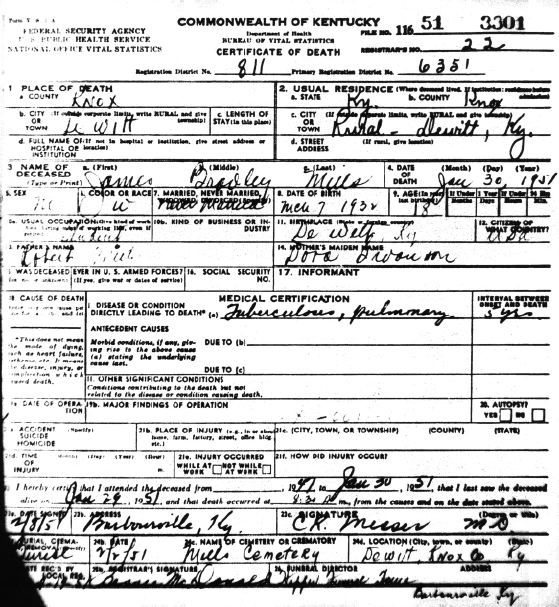 COMMONWEALTH OF KENTUCKY
FEDERAL SECURITY AGENCY
U.S. PUBLIC HEALTH SERVICE
NATIONAL OFFICE VITAL STATISTICS
Department of Health
BUREAU OF VITAL STATISTICS
CERTIFICATE OF DEATH
FILE NO. 116 51 3301
REGISTRAR'S NO. 22
Registration District No. 811 Primary Registration District No. 6351
1 PLACE OF DEATH
a. COUNTY Knox
2. USUAL RESIDENCE (Where deceased lived. If institution: residence before admission)
a. STATE Ky. b. COUNTY Knox
b. CITY (If outside corporate limits, write RURAL and give township)
OR TOWN De Witt
c. LENGTH OF STAY (in this place)
c. CITY (If outside corporate limits, write RURAL and give township)
OR TOWN Rural - Dewitt, Ky.
d. FULL NAME OF (If not in hospital or institution, give street address or location)
HOSPITAL OR INSTITUTION
d. STREET ADDRESS
3 NAME OF DECEASED (Type or Print)
a. (First) James (Middle) Bradley c. (Last) Mills
4. DATE OF DEATH (Month) (Day) (Year) Jan 30 1951
5. SEX
6. COLOR OR RACE W
7. MARRIED, NEVER MARRIED,
8. DATE OF BIRTH 1932
9. AGE 18
10a. USUAL OCCUPATION
10b. KIND OF BUSINESS OR INDUSTRY
11. BIRTHPLACE (State or foreign country)
Ky
12. CITIZEN OF WHAT COUNTRY?
FATHER'S NAME
Robert
14. MOTHER'S MAIDEN NAME
Dora
WAS DECEASED EVER IN U.S. ARMED FORCES? (If yes, give war or dates of service)
16. SOCIAL SECURITY NO.
17. INFORMANT
18. CAUSE OF DEATH
MEDICAL CERTIFICATION
INTERVAL BETWEEN ONSET AND DEATH
I. DISEASE OR CONDITION DIRECTLY LEADING TO DEATH* (a) Tuberculosis, pulmonary 5 yrs
*This does not mean the mode of dying, such as heart failure,
ANTECEDENT CAUSES
Morbid conditions, if any, giving rise to the above cause (a) stating the underlying cause last.
DUE TO (b)
DUE TO (c)
II. OTHER SIGNIFICANT CONDITIONS
Conditions contributing to the death but not related to the disease or condition causing death.
DATE OF OPERATION
19b. MAJOR FINDINGS OF OPERATION
20. AUTOPSY?
YES NO
ACCIDENT (Specify)
SUICIDE
HOMICIDE
21b. PLACE OF INJURY (e.g., in or about home, farm, factory, street, office bldg. etc.)
21c. (CITY, TOWN, OR TOWNSHIP) (COUNTY) (STATE)
TIME OF INJURY (Month) (Day) (Year) (Hour)
21e. INJURY OCCURRED
WHILE AT WORK NOT WHILE AT WORK
21f. HOW DID INJURY OCCUR?
I hereby certify that I attended the deceased from 1947 to Jan 30, 1951, that I last saw the deceased
alive on Jan 29, 1951, and that death occurred at m., from the causes and on the date stated above.
DATE SIGNED 2/8/51
23b. ADDRESS Barbourville, Ky.
23c. SIGNATURE C.R. Messer (Degree or title) MD
24b. DATE 2/2/51
24c. NAME OF CEMETERY OR CREMATORY Mills Cemetery
24d. LOCATION (City, town, or county) (State) Dewitt, Knox Co Ky
DATE REC'D BY LOCAL REG.
REGISTRAR'S SIGNATURE
FUNERAL DIRECTOR
Funeral Home
Barbourville Ky